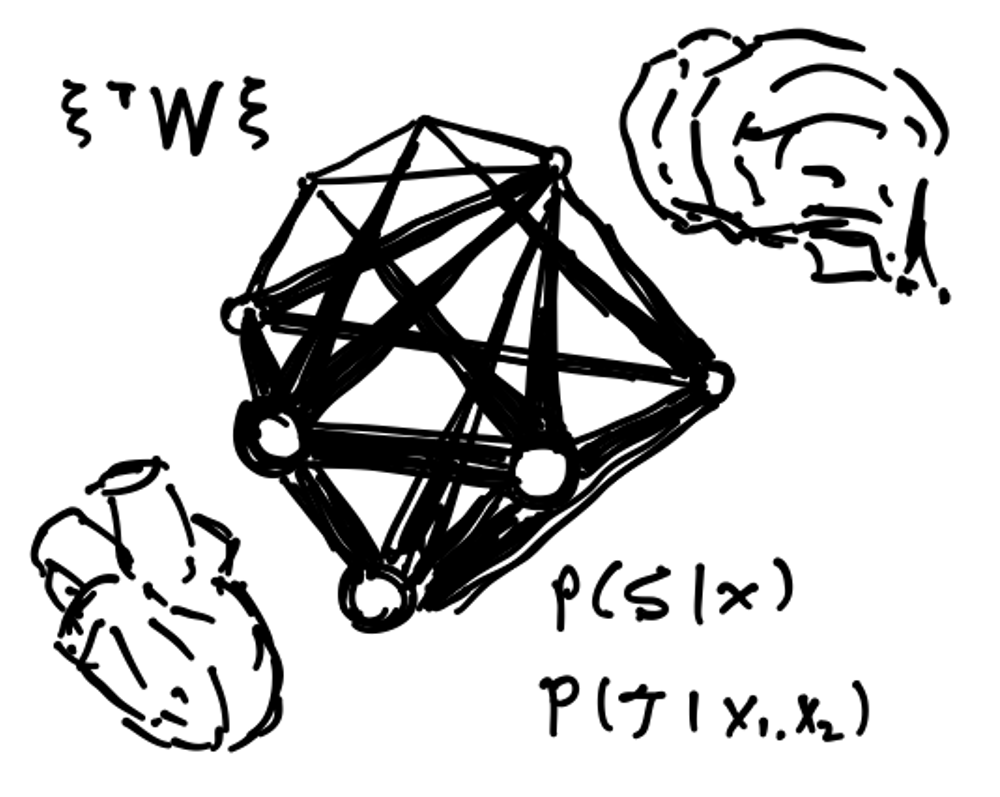 ξᵀWξ
p(S|x)
p(J|x₁,x₂)